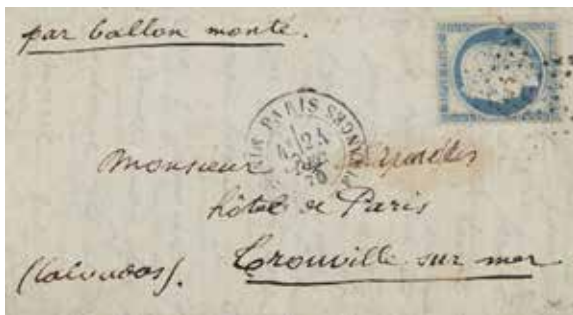 par ballon monté.
PARIS
Monsieur
hôtel de Paris
Trouville sur mer
(Calvados).